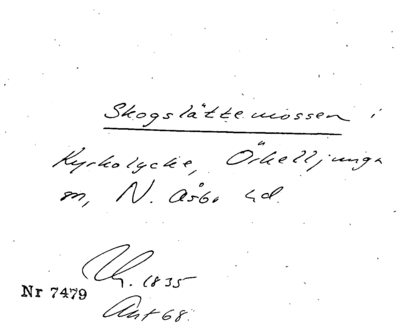 Skogslättemossen i
Kyrkolycke, Örkelljunga
m, N. Åsbo hd.
Uh. 1835
Nr 7479
Ant 68.